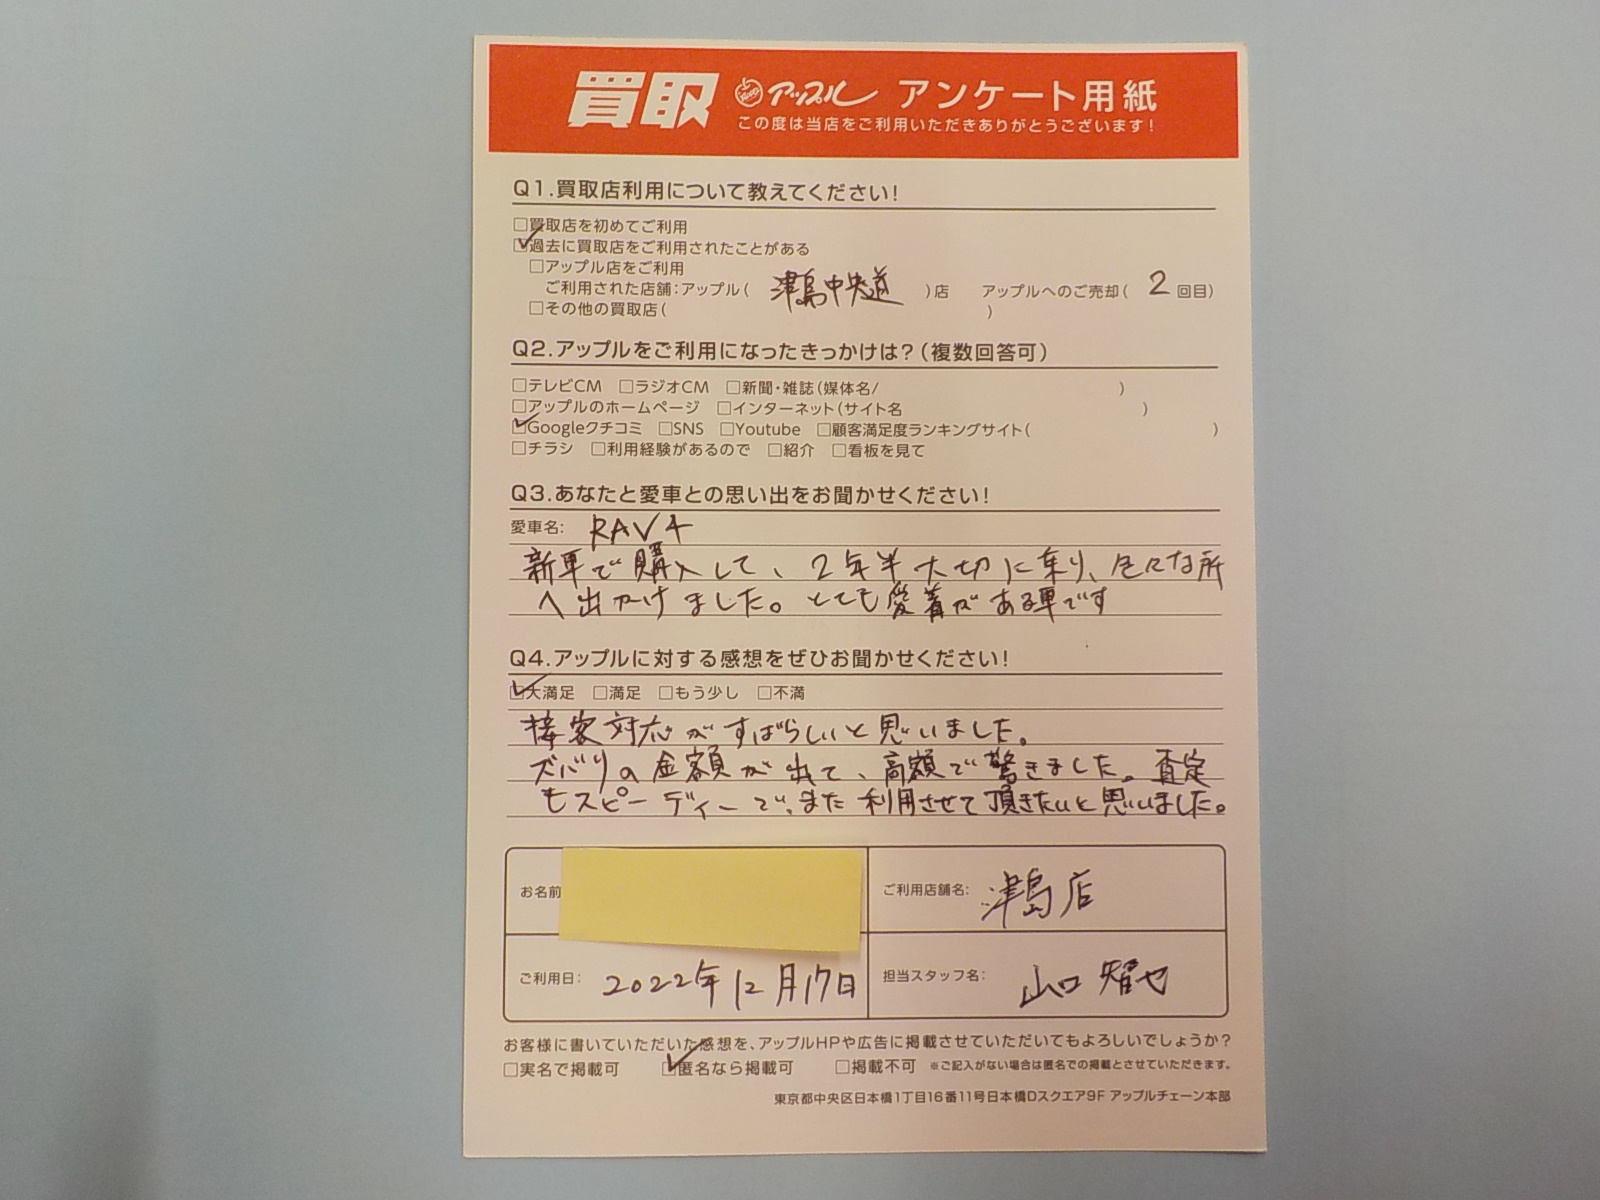 買取 アップル アンケート用紙
この度は当店をご利用いただきありがとうございます!
Q1.買取店利用について教えてください!
□買取店を初めてご利用
☑過去に買取店をご利用されたことがある
□アップル店をご利用
ご利用された店舗:アップル( 津島中央道 )店 アップルへのご売却( 2 回目)
□その他の買取店( )
Q2.アップルをご利用になったきっかけは?(複数回答可)
□テレビCM □ラジオCM □新聞・雑誌(媒体名/ )
□アップルのホームページ □インターネット(サイト名 )
☑Googleクチコミ □SNS □Youtube □顧客満足度ランキングサイト( )
□チラシ □利用経験があるので □紹介 □看板を見て
Q3.あなたと愛車との思い出をお聞かせください!
愛車名: RAV4
新車で購入して、2年半大切に乗り、色々な所
へ出かけました。とても愛着がある車です
Q4.アップルに対する感想をぜひお聞かせください!
☑大満足 □満足 □もう少し □不満
接客対応がすばらしいと思いました。
ズバリの金額が出て、高額で驚きました。査定
もスピーディーで、また利用させて頂きたいと思いました。
お名前
ご利用店舗名: 津島店
ご利用日: 2022年12月17日
担当スタッフ名: 山口智也
お客様に書いていただいた感想を、アップルHPや広告に掲載させていただいてもよろしいでしょうか?
□実名で掲載可 ☑匿名なら掲載可 □掲載不可 ※ご記入がない場合は匿名での掲載とさせていただきます。
東京都中央区日本橋1丁目16番11号日本橋Dスクエア9F アップルチェーン本部